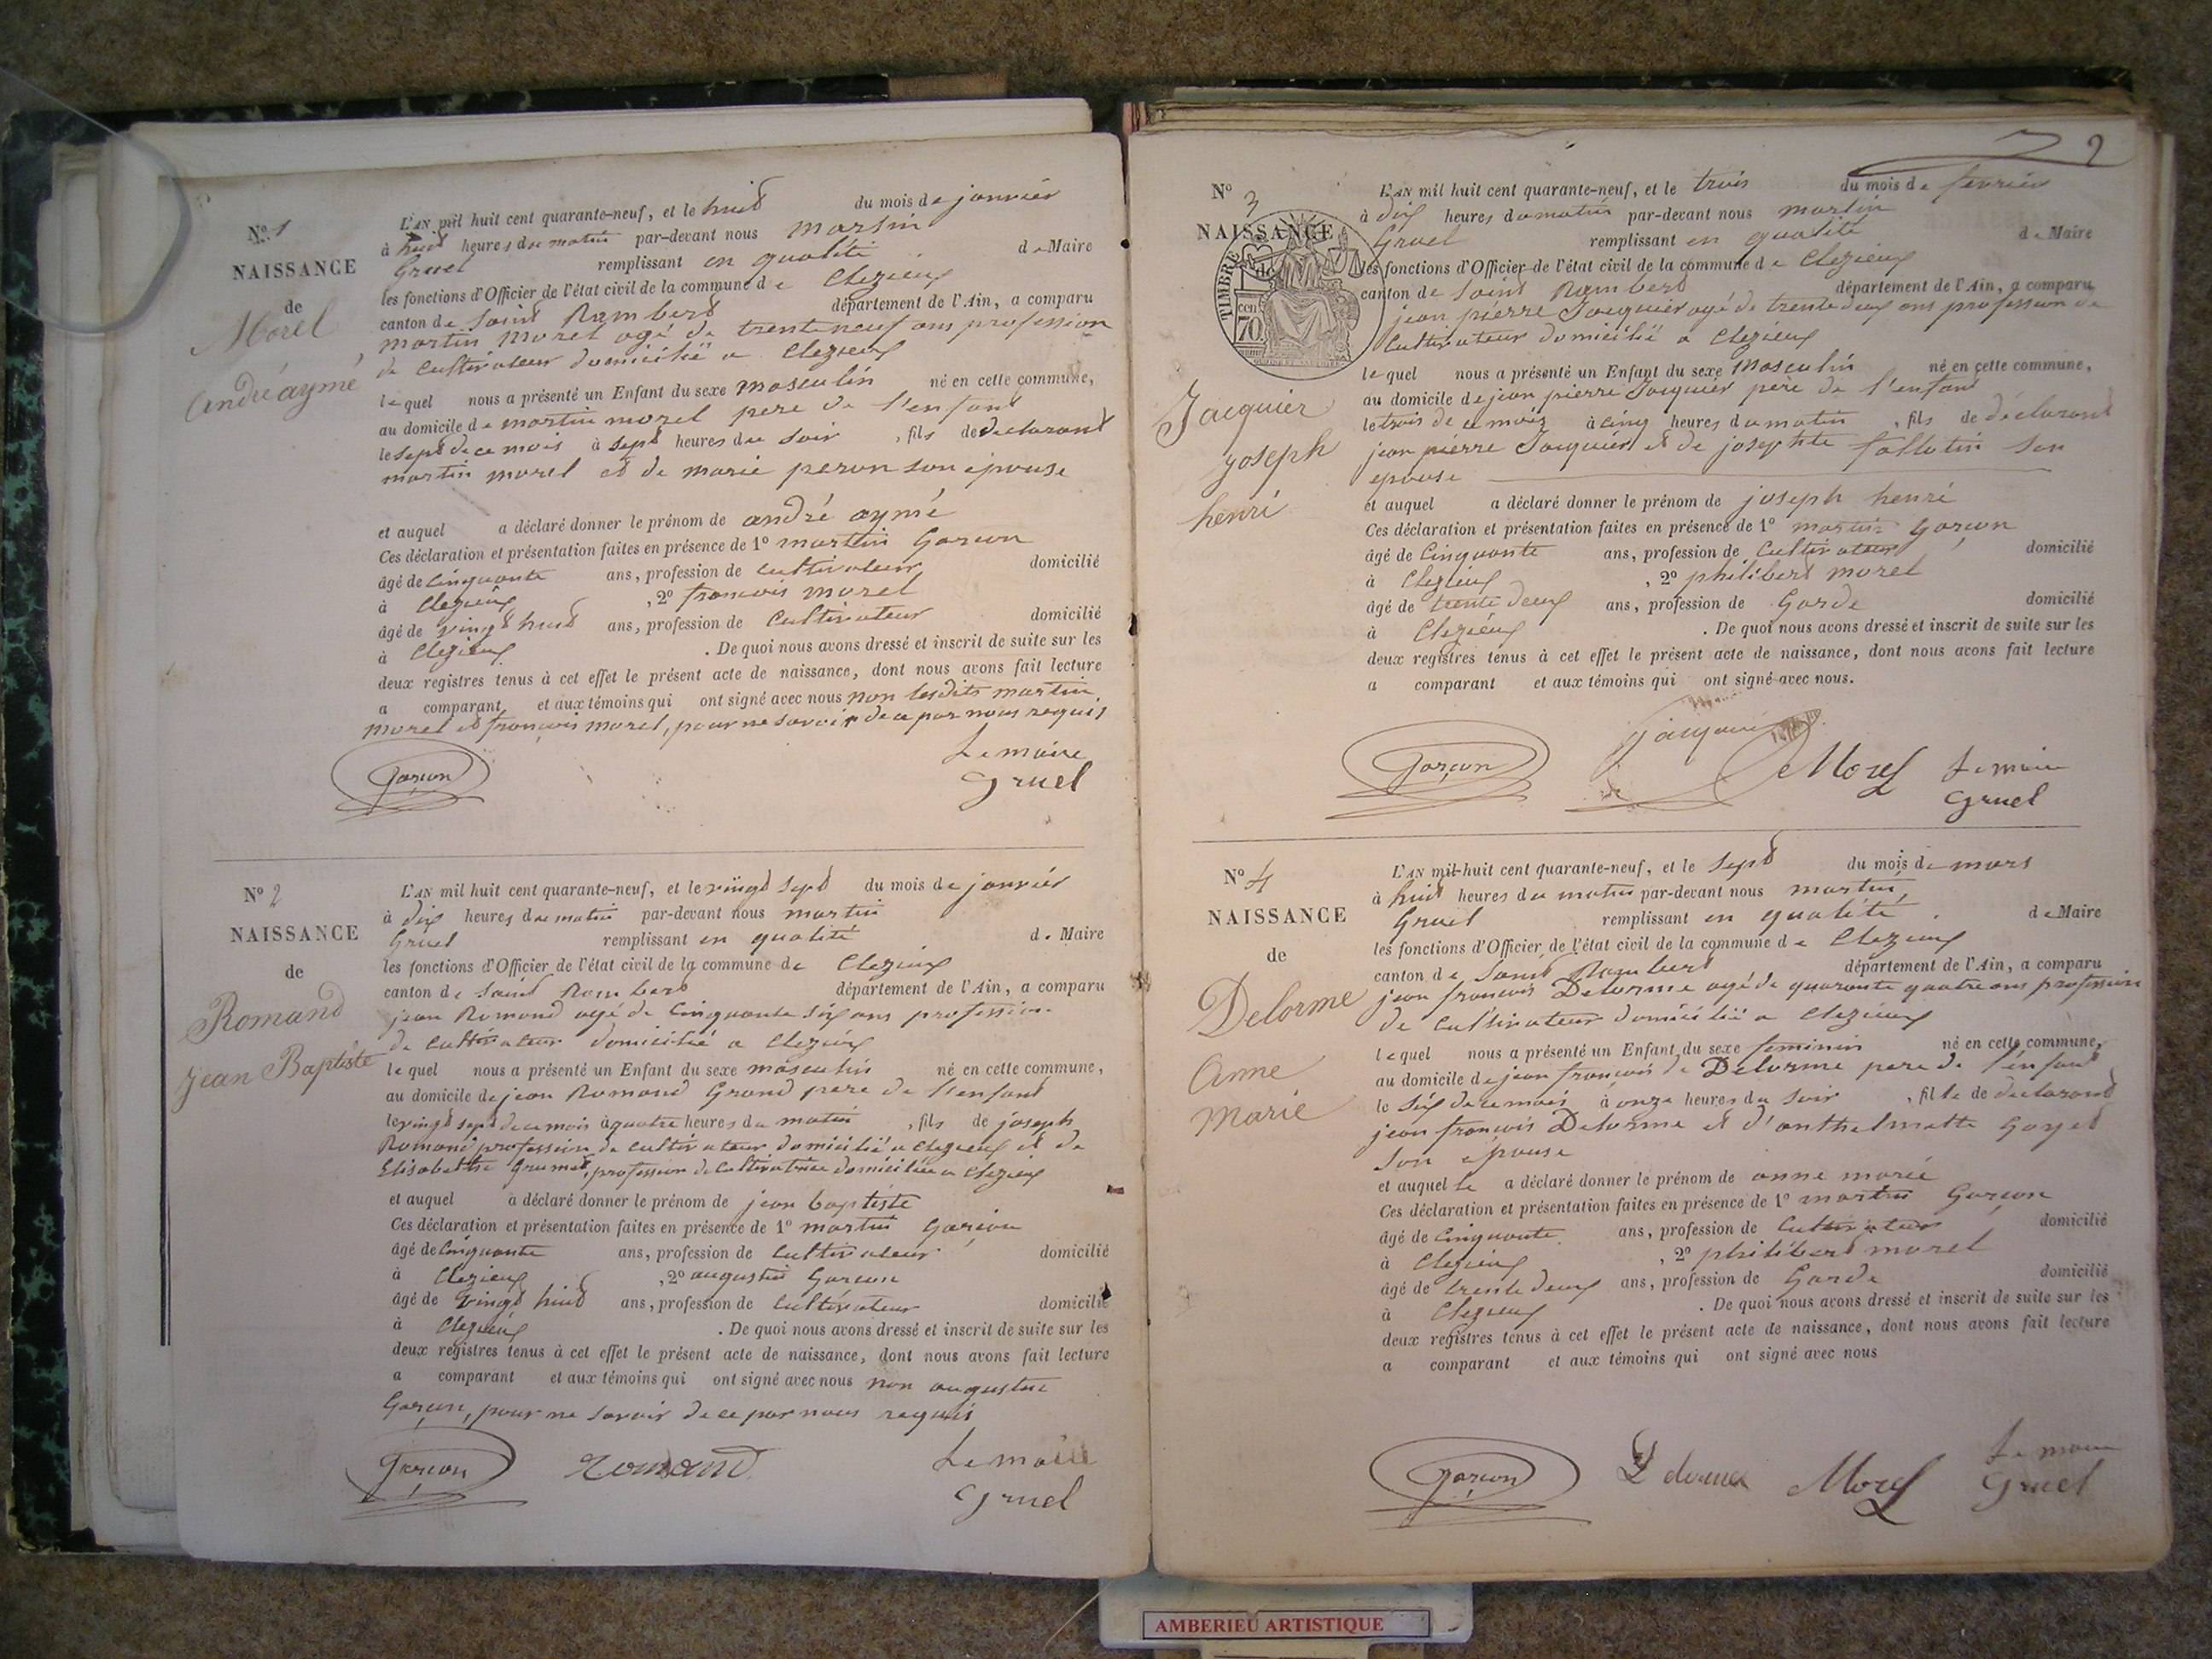 No 1
NAISSANCE
de
Morel
André aymé
L'AN mil huit cent quarante-neuf, et le huid du mois de janviér
à huid heures du matin par-devant nous martin
Gruel remplissant en qualité de Maire
les fonctions d'Officier de l'état civil de la commune de Clezieux
canton de Saind Rambers département de l'Ain, a comparu
martin morel agé de trente neuf ans profession
de Cultivateur domicilié a Clezieux
lequel nous a présenté un Enfant du sexe masculin né en cette commune,
au domicile de martin morel pere de l'enfant
le sept de ce mois à sept heures du soir, fils de declarant
martin morel et de marie peron son épouse
et auquel a déclaré donner le prénom de andré aymé
Ces déclaration et présentation faites en présence de 1o martin Garcon
âgé de Cinquante ans, profession de Cultivateur domicilié
à Clezieux, 2o francois morel
âgé de vingt huid ans, profession de Cultivateur domicilié
à Clezieux. De quoi nous avons dressé et inscrit de suite sur les
deux registres tenus à cet effet le présent acte de naissance, dont nous avons fait lecture
a comparant et aux témoins qui ont signé avec nous non lesdits martin
morel et françois morel, pour ne savoir de ce par nous requis
Garçon
Le maire
Gruel
No 2
NAISSANCE
de
Romand
Jean Baptiste
L'AN mil huit cent quarante-neuf, et le vingt sept du mois de janviér
à dix heures du matin par-devant nous martin
Gruel remplissant en qualité de Maire
les fonctions d'Officier de l'état civil de la commune de Clezieux
canton de Saind Rambers département de l'Ain, a comparu
jean Romand agé de Cinquante six ans profession
de Cultivateur domicilié a Clezieux
lequel nous a présenté un Enfant du sexe masculin né en cette commune,
au domicile de jean Romand Grand pere de l'enfant
le vingt sept de ce mois à quatre heures du matin, fils de joseph
Romand profession de cultivateur domicilié a Clezieux et de
Elisabethe Grumet, profession de Cultivatrice domiciliée a Clezieux
et auquel a déclaré donner le prénom de jean baptiste
Ces déclaration et présentation faites en présence de 1o martin Garçon
âgé de Cinquante ans, profession de Cultivateur domicilié
à Clezieux, 2o augustin Garcon
âgé de vingt huid ans, profession de Cultivateur domicilié
à Clezieux. De quoi nous avons dressé et inscrit de suite sur les
deux registres tenus à cet effet le présent acte de naissance, dont nous avons fait lecture
a comparant et aux témoins qui ont signé avec nous non augustin
Garçon, pour ne savoir de ce par nous requis
Garçon Romand
Le maire
Gruel
2
No 3
NAISSANCE
de
TIMBRE
70 cent
Jacquier
joseph
henri
L'AN mil huit cent quarante-neuf, et le trois du mois de fevrier
à dix heures du matin par-devant nous martin
Gruel remplissant en qualité de Maire
les fonctions d'Officier de l'état civil de la commune de Clezieux
canton de Saind Rambers département de l'Ain, a comparu
jean pierre Jacquier agé de trente deux ans profession de
Cultivateur domicilié a Clezieux
lequel nous a présenté un Enfant du sexe Masculin né en cette commune,
au domicile de jean pierre Jacquier pere de l'enfant
le trois de ce mois à cinq heures du matin, fils de déclarant
jean pierre Jacquier et de josephte fallotin son
epouse
et auquel a déclaré donner le prénom de joseph henri
Ces déclaration et présentation faites en présence de 1o martin Garçon
âgé de Cinquante ans, profession de Cultivateur domicilié
à Clezieux, 2o philibert morel
âgé de trente deux ans, profession de Garde domicilié
à Clezieux. De quoi nous avons dressé et inscrit de suite sur les
deux registres tenus à cet effet le présent acte de naissance, dont nous avons fait lecture
a comparant et aux témoins qui ont signé avec nous.
Garçon Morel
Le maire
Gruel
No 4
NAISSANCE
de
Delorme
Anne
Marie
L'AN mil huit cent quarante-neuf, et le Sept du mois de mars
à huid heures du matin par-devant nous martin
Gruel remplissant en qualité de Maire
les fonctions d'Officier de l'état civil de la commune de Clezieux
canton de Saind Rambert département de l'Ain, a comparu
jean francois Delorme agé de quarante quatre ans profession
de Cultivateur domicilié a Clezieux
lequel nous a présenté un Enfant du sexe feminin né en cette commune,
au domicile de jean francois de Delorme pere de l'enfant
le six de ce mois à onze heures du soir, fille de declarant
jean francois Delorme et d'anthelmette Goyet
son épouse
et auquel le a déclaré donner le prénom de anne marie
Ces déclaration et présentation faites en présence de 1o martin Garçon
âgé de Cinquante ans, profession de Cultivateur domicilié
à Clezieux, 2o philibert morel
âgé de trente deux ans, profession de Garde domicilié
à Clezieux. De quoi nous avons dressé et inscrit de suite sur les
deux registres tenus à cet effet le présent acte de naissance, dont nous avons fait lecture
a comparant et aux témoins qui ont signé avec nous
Garçon Morel
Le maire
Gruel
AMBERIEU ARTISTIQUE